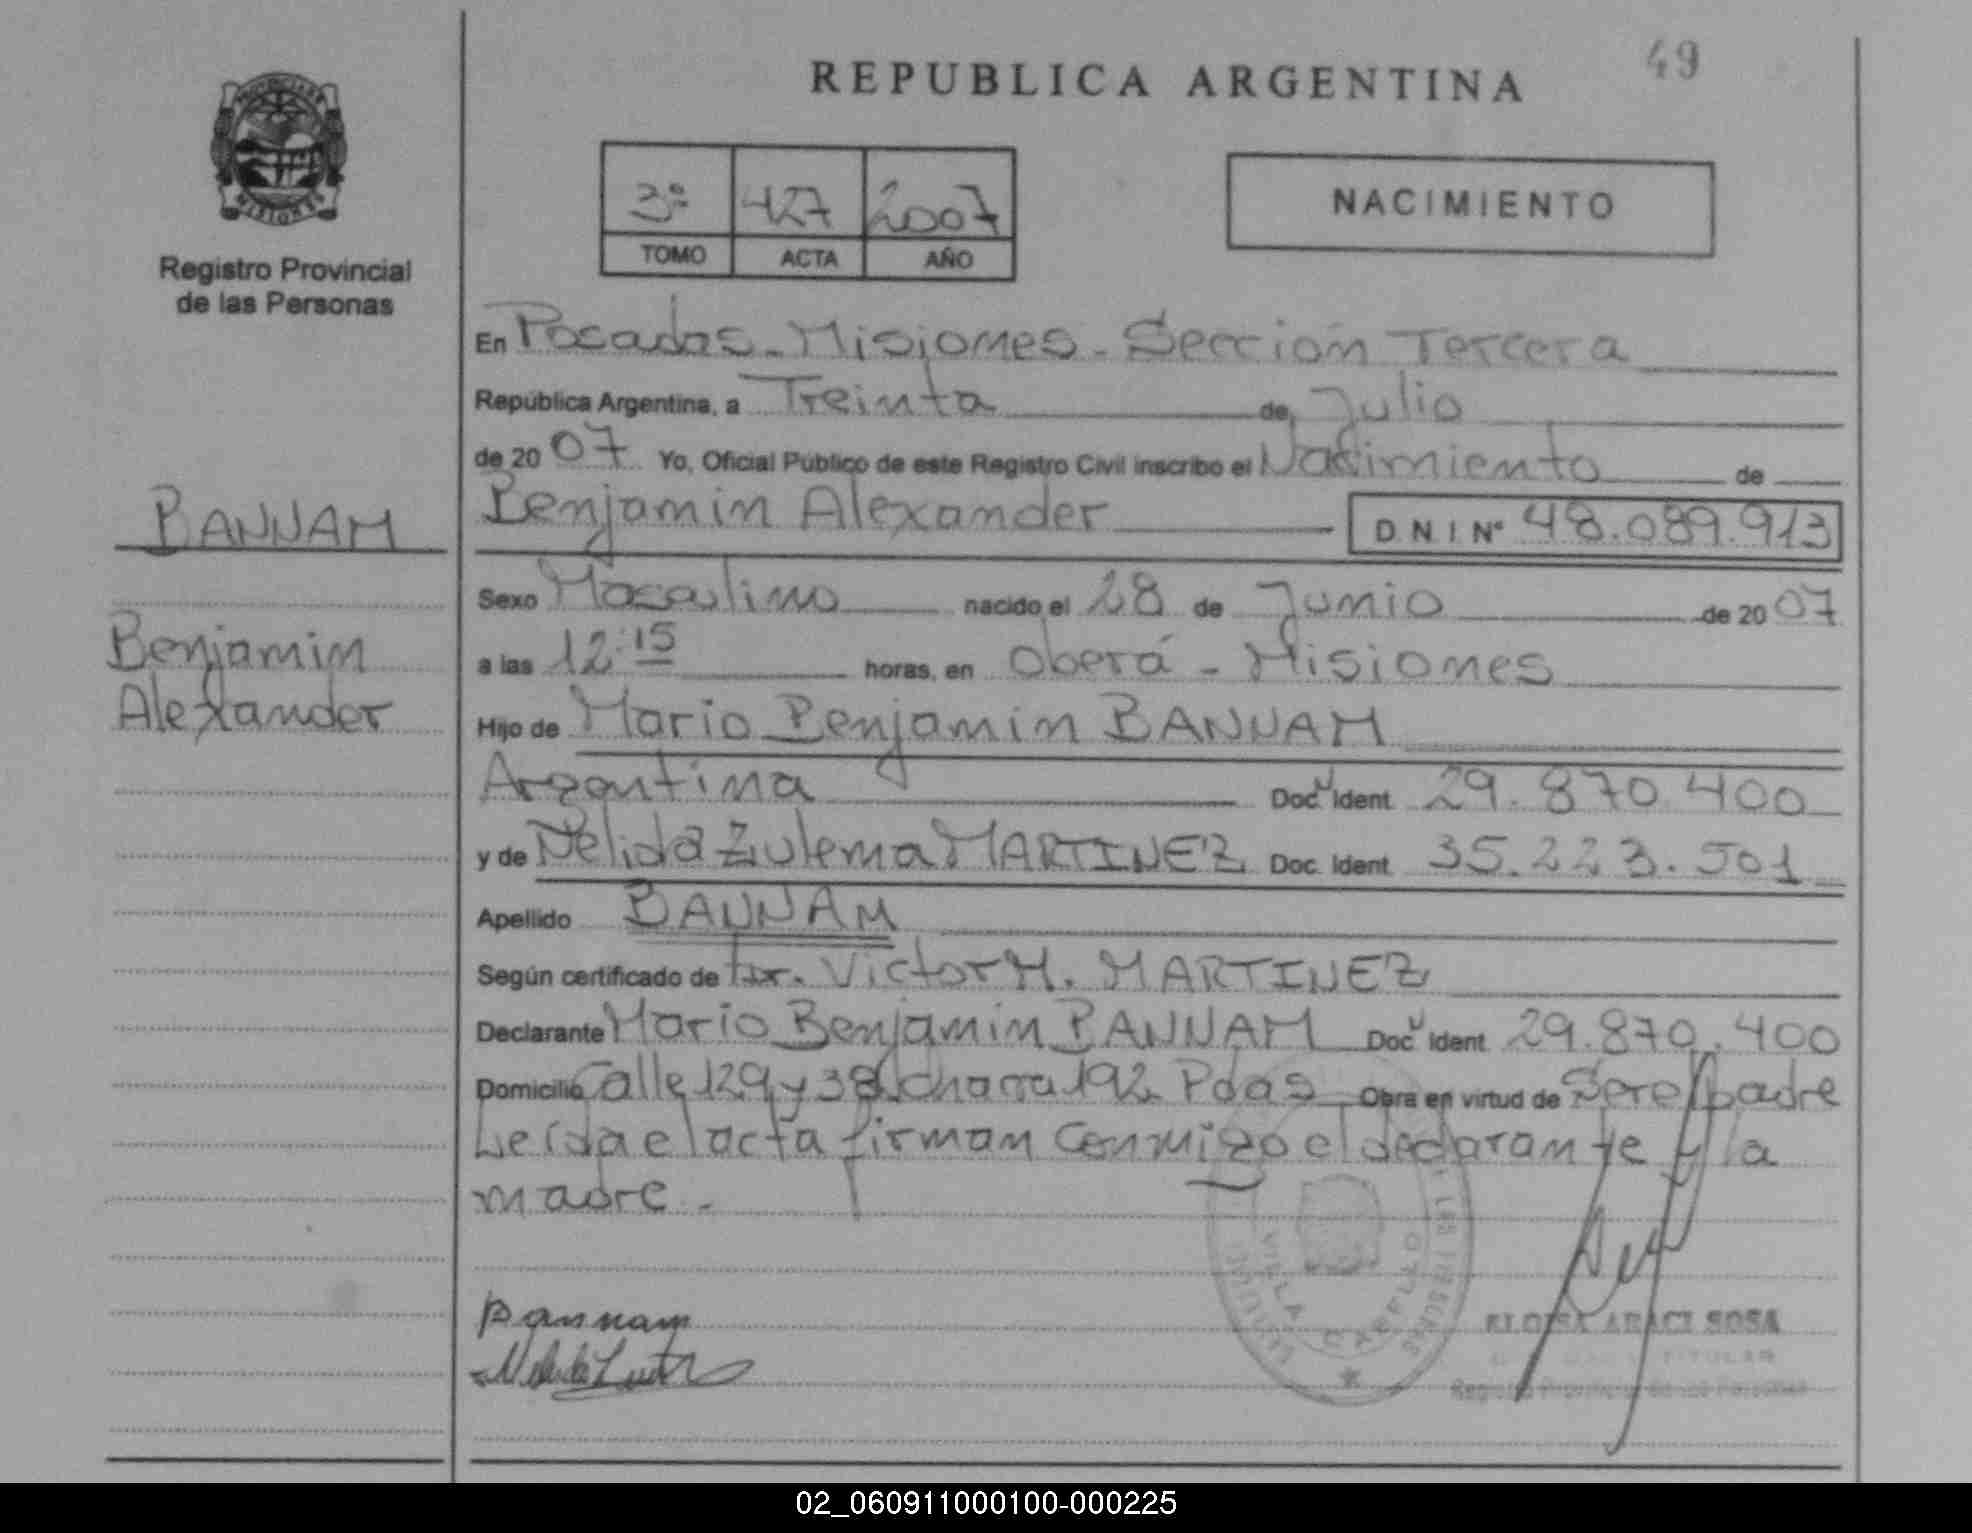 49
REPUBLICA ARGENTINA
PROVINCIA DE
MISIONES
Registro Provincial
de las Personas
3º 427 2007
TOMO ACTA AÑO
NACIMIENTO
En Posadas - Misiones - Sección Tercera
República Argentina, a Treinta de Julio
de 2007 Yo, Oficial Público de este Registro Civil inscribo el Nacimiento de
BANNAM
Benjamin Alexander D.N.I. Nº 48.089.913
Sexo Masculino nacido el 28 de Junio de 2007
Benjamin
Alexander
a las 12:15 horas, en Oberá - Misiones
Hijo de Mario Benjamin BANNAM
Argentina Doc. Ident. 29.870.400
y de Nelida Zulema MARTINEZ Doc. Ident. 35.223.501
Apellido BANNAM
Según certificado de Dr. Victor M. MARTINEZ
Declarante Mario Benjamin BANNAM Doc. Ident. 29.870.400
Domicilio Calle 129 y 38 chacra 192 Pdas Obra en virtud de Ser el padre
Leída el acta firman conmigo el declarante y la
madre -
Bannam
VILLA CABELLO
LAS PERSONAS
ELOISA ARACI SOSA
TITULAR
Registro Provincial de las Personas
02_060911000100-000225